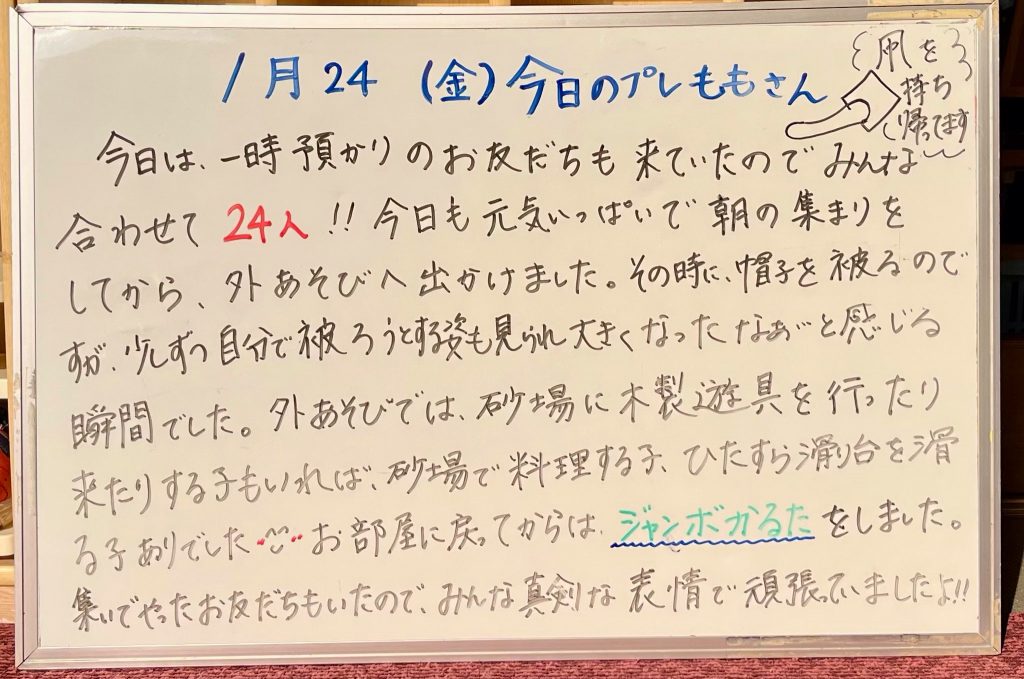 1月24(金)今日のプレももさん
凧を
持ち
帰ってます
今日は、一時預かりのお友だちも来ていたのでみんな
合わせて24人!!今日も元気いっぱいで朝の集まりを
してから、外あそびへ出かけました。その時に、帽子を被るので
すが、少しずつ自分で被ろうとする姿も見られ大きくなったなぁ〜と感じる
瞬間でした。外あそびでは、砂場に木製遊具を行ったり
来たりする子もいれば、砂場で料理する子、ひたすら滑り台を滑
る子ありでした お部屋に戻ってからは、ジャンボかるたをしました。
集いでやったお友だちもいたので、みんな真剣な表情で頑張っていましたよ!!